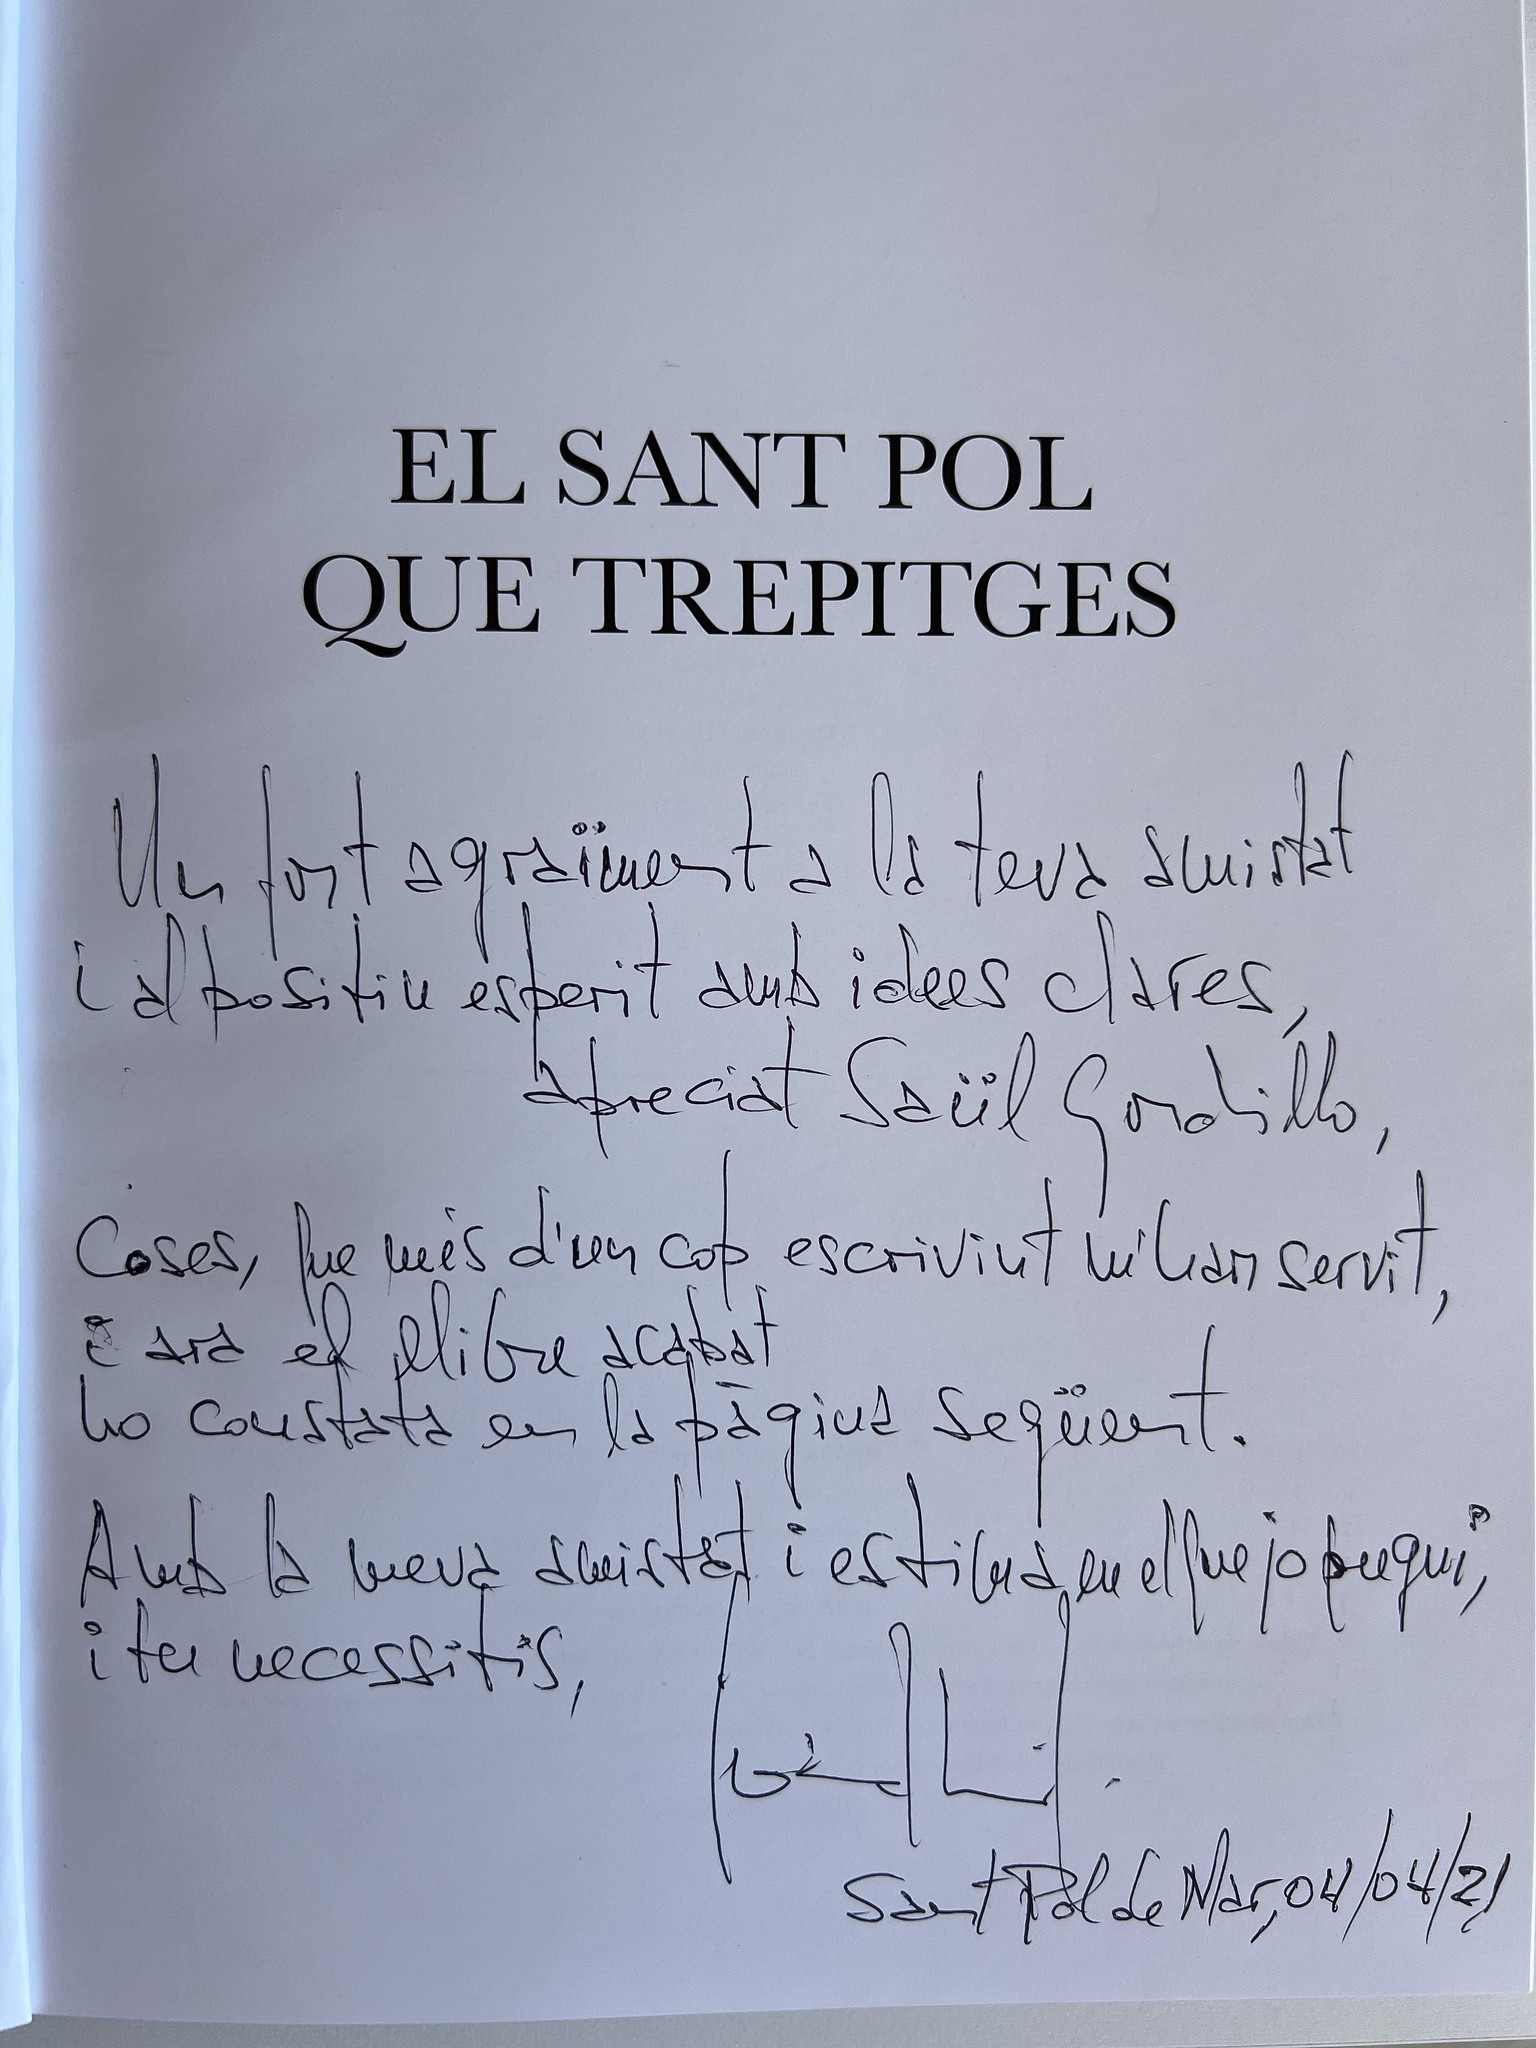 EL SANT POL
QUE TREPITGES
Un fort agraïment a la teva amistat
i al positiu esperit amb idees clares,
apreciat Saül Gordillo,
Coses, que més d'un cop escrivint m'han servit,
i ara el llibre acabat
ho constata en la pàgina següent.
Amb la meva amistat i estima en el que jo pugui,
i tu necessitis,
Sant Pol de Mar, 04/04/21